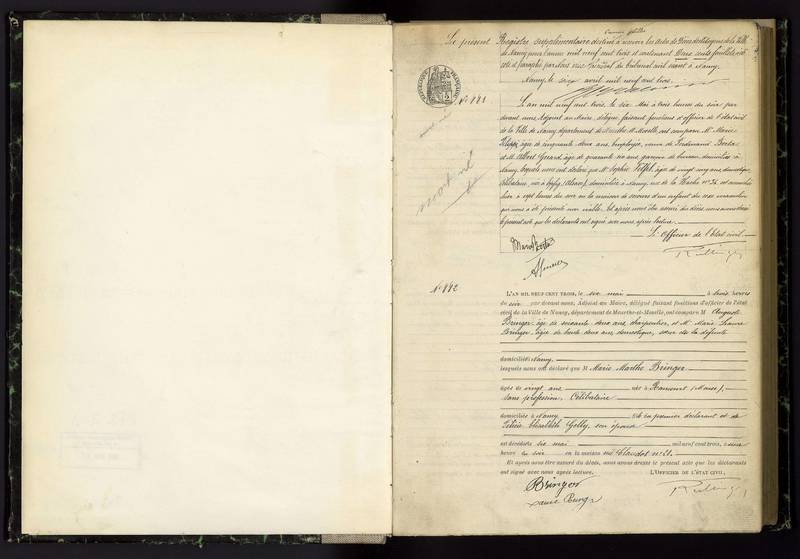 Le présent Registre supplémentaire destiné à recevoir les Actes de Décès de la Ville
de Nancy pour l'année mil neuf cent trois et contenant Deux cents feuillets, a été
coté et paraphé par Nous vice Président du tribunal civil séant à Nancy.
Nancy, le seize avril mil neuf cent trois.
N° 191
L'an mil neuf cent trois, le six Mai à trois heures du soir par
devant nous Adjoint au Maire, délégué, faisant fonctions d'officier de l'état civil
de la Ville de Nancy département de Meurthe et Moselle, ont comparu Mme Marie
âgée de cinquante deux ans, employée, veuve de Ferdinand Borla
et M. Albert Girard, âgé de quarante six ans, garçon de bureau, domiciliés à
Nancy, lesquels nous ont déclaré que Melle Sophie âgée de vingt cinq ans, domestique,
célibataire, née à (Alsace), domiciliée à Nancy, rue de la Hache n° 36 est accouchée
hier à sept heures du soir en la maison de secours d'un enfant du sexe masculin
qui nous a été présenté non viable. Et après nous être assuré du décès, nous avons dressé
le présent acte que les déclarants ont signé avec nous, après lecture.
L'Officier de l'Etat civil
mort né
N° 192
L'AN MIL NEUF CENT TROIS, le six mai à trois heures
du soir par devant nous, Adjoint au Maire, délégué faisant fonctions d'officier de l'état
civil de la Ville de Nancy, département de Meurthe-et-Moselle, ont comparu M Auguste
Bringer, âgé de soixante deux ans, charpentier, et Melle Marie Laure
Bringer, âgée de trente deux ans, domestique, sœur de la défunte
domiciliés Nancy,
lesquels nous ont déclaré que M Marie Marthe Bringer
âgée de vingt ans née à Rancourt (Meuse),
sans profession, Célibataire
domiciliée à Nancy fille du premier déclarant et de
Félicie Elisabeth Gelly, son épouse
est décédée six mai mil neuf cent trois, à une
heure du soir en la maison rue Claudot n° 21.
Et après nous être assuré du décès, nous avons dressé le présent acte que les déclarants
ont signé avec nous, après lecture. L'OFFICIER DE L'ÉTAT CIVIL,
Bringer